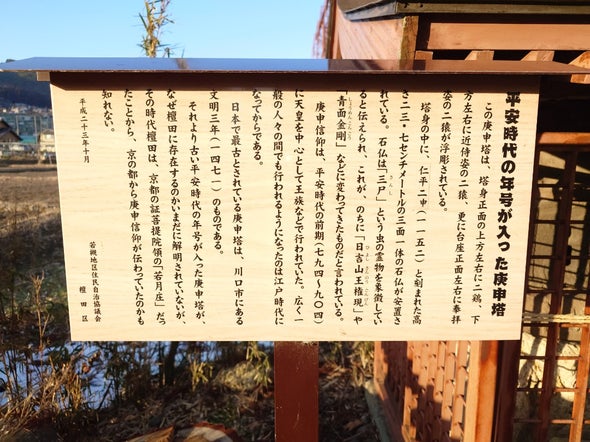 平安時代の年号が入った庚申塔
この庚申塔は、塔身正面の上方左右に二鶏、下
方左右に近侍姿の二猿、更に台座正面左右に奉拝
姿の二猿が浮彫されている。
塔身の中に、仁平二申(一一五二)と刻まれた高
さ二三・七センチメートルの三面一体の石仏が安置さ
れている。石仏は「三尸」という虫の霊物を象徴してい
ると伝えられ、これが、のちに「日吉山王権現」や
「青面金剛」などに変わってきたものだと言われている。
庚申信仰は、平安時代の前期(七九四〜九〇四)
に天皇を中心として王族などで行われていた。広く一
般の人々の間でも行われるようになったのは江戸時代に
なってからである。
日本で最古とされている庚申塔は、川口市にある
文明三年(一四七一)のものである。
それより古い平安時代の年号が入った庚申塔が、
なぜ檀田に存在するのかいまだに解明されていないが、
その時代檀田は、京都の証菩提院領の「若月庄」だっ
たことから、京の都から庚申信仰が伝わっていたのかも
知れない。
平成二十三年十月
若槻地区住民自治協議会
檀田区